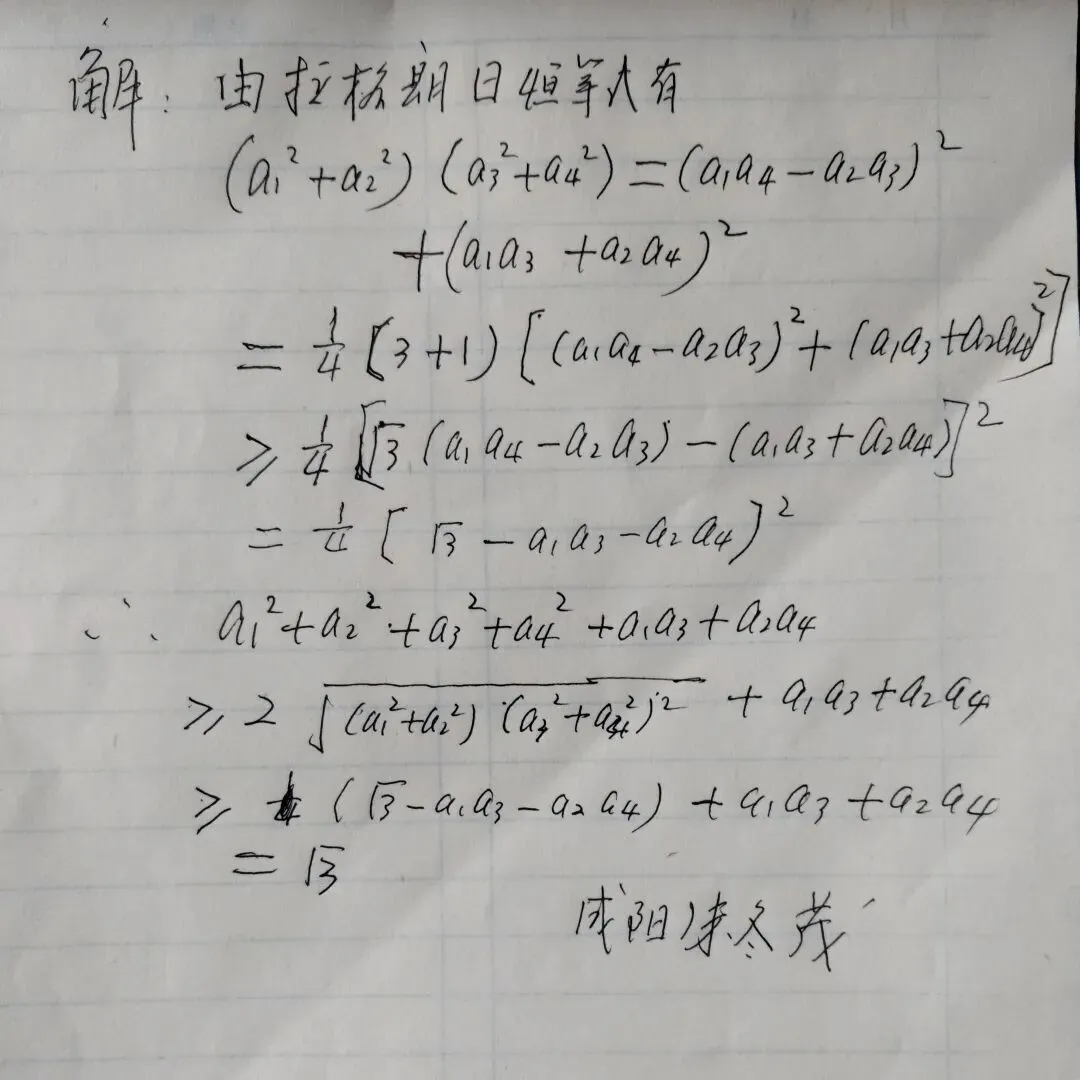 解: 由拉格期日恒等式有
(a₁²+a₂²) (a₃²+a₄²) = (a₁a₄-a₂a₃)²
+(a₁a₃ +a₂a₄)²
= 1/4 (3+1) [(a₁a₄-a₂a₃)²+(a₁a₃+a₂a₄)²]
≥ 1/4 [√3 (a₁a₄-a₂a₃)-(a₁a₃+a₂a₄)]²
= 1/4 [√3 -a₁a₃-a₂a₄]²
∴ a₁²+a₂²+a₃²+a₄²+a₁a₃+a₂a₄
≥ 2 √(a₁²+a₂²) (a₃²+a₄²) + a₁a₃+a₂a₄
≥ (√3-a₁a₃-a₂a₄) +a₁a₃+a₂a₄
= √3
咸阳 冬茂